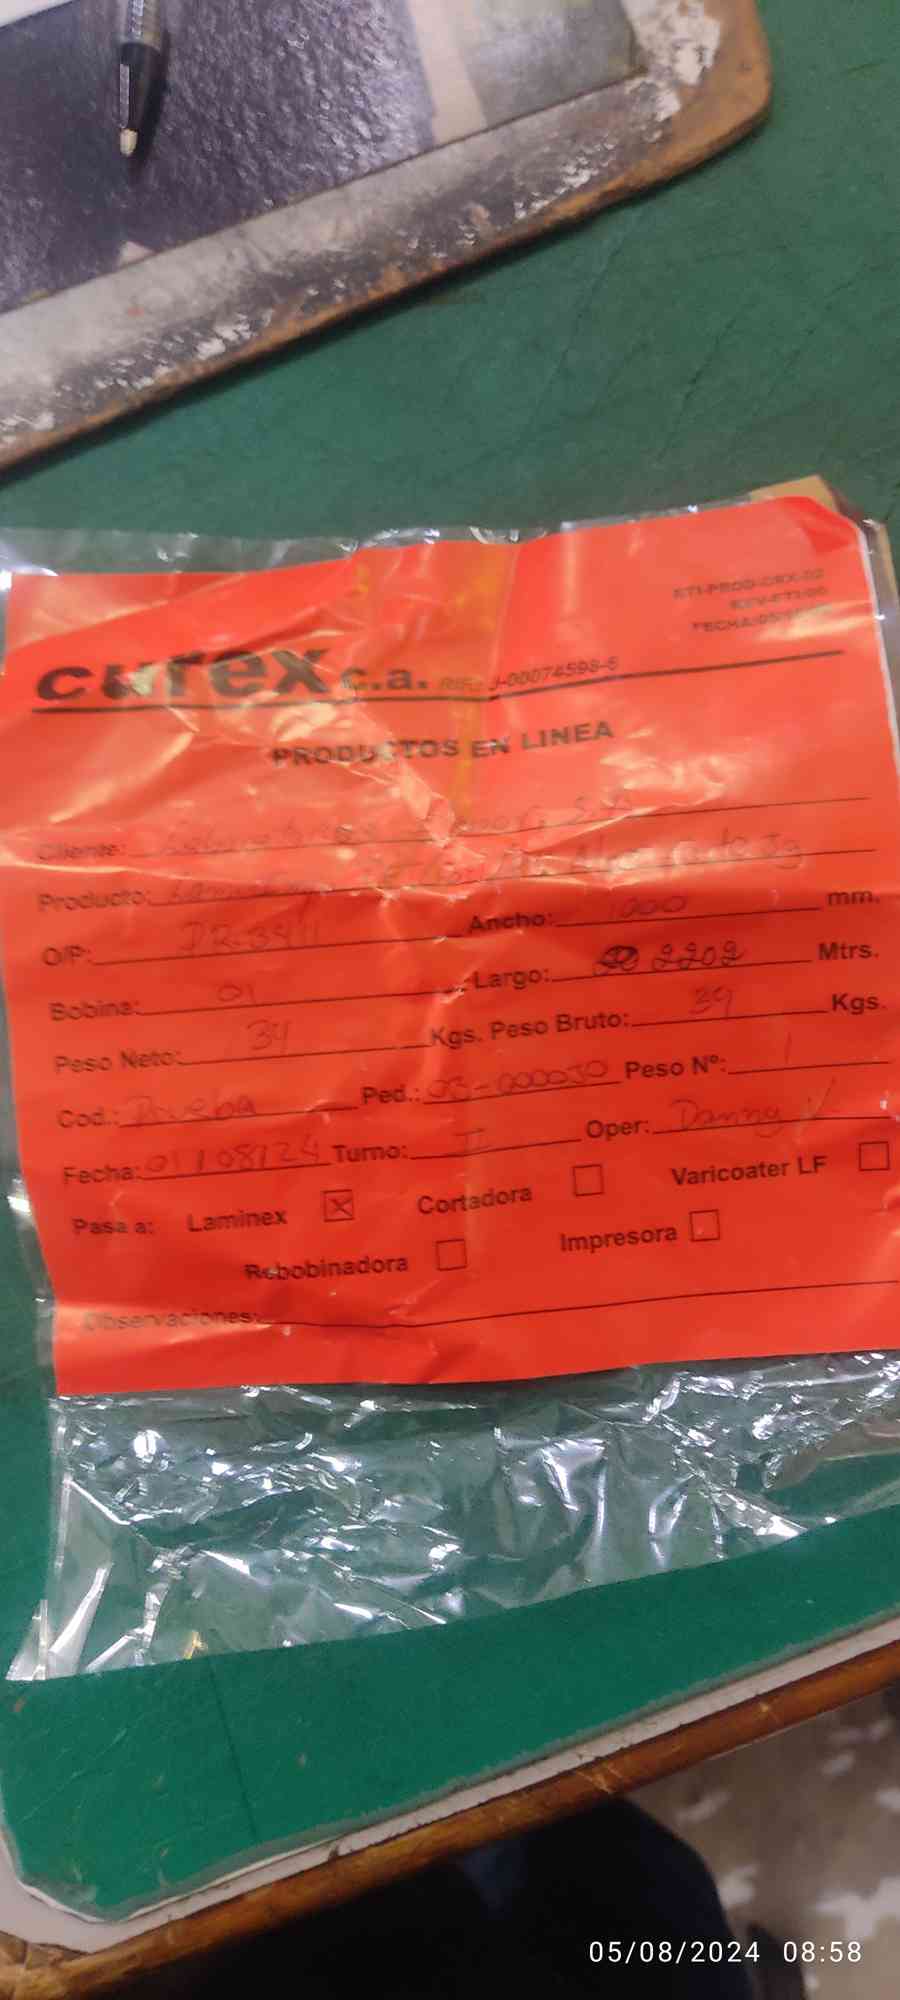 ETI-PROD-CRX-02
REV-ETI-00
FECHA:05/
curex c.a. RIF.: J-00074598-6
PRODUCTOS EN LINEA
Cliente: S.A
Producto:
O/P: DR-3411 Ancho: 1000 mm.
Bobina: 01 Largo: 2202 Mtrs.
Peso Neto: 34 Kgs. Peso Bruto: 39 Kgs.
Cod.: Prueba Ped.: 03-000030 Peso Nº: 1
Fecha: 01/08/24 Turno: II Oper: Danny V
Pasa a: Laminex ☒ Cortadora ☐ Varicoater LF ☐
Rebobinadora ☐ Impresora ☐
Observaciones:
05/08/2024 08:58